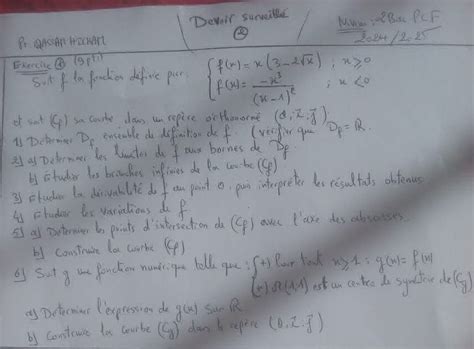 Pr. QASSAM HICHAM
Devoir surveillé
②
2 Bac. PC F
2024/2025
Exercice ① (9 pts)
Soit f la fonction définie par: { f(x) = x(3 - 2√x) ; x ≥ 0
f(x) = -x³/(x-1)² ; x < 0
et soit (Cf) sa courbe dans un repère orthonormé (O, i⃗, j⃗)
1) Déterminer Df ensemble de définition de f. (vérifier que Df = ℝ.
2) a) Déterminer les limites de f aux bornes de Df.
b) Etudier les branches infinies de la courbe (Cf)
3) Etudier la dérivabilité de f au point 0, puis interpréter les résultats obtenus.
4) Etudier les variations de f.
5) a) Déterminer les points d'intersection de (Cf) avec l'axe des abscisses.
b) Construire la courbe (Cf)
6) Soit g une fonction numérique telle que: (*) Pour tout x ≥ 1 : g(x) = f(x)
(*) Ω(1,1) est un centre de symétrie de (Cg)
a) Déterminer l'expression de g(x) sur ℝ
b) Construire la courbe (Cg) dans le repère (O, i⃗, j⃗)